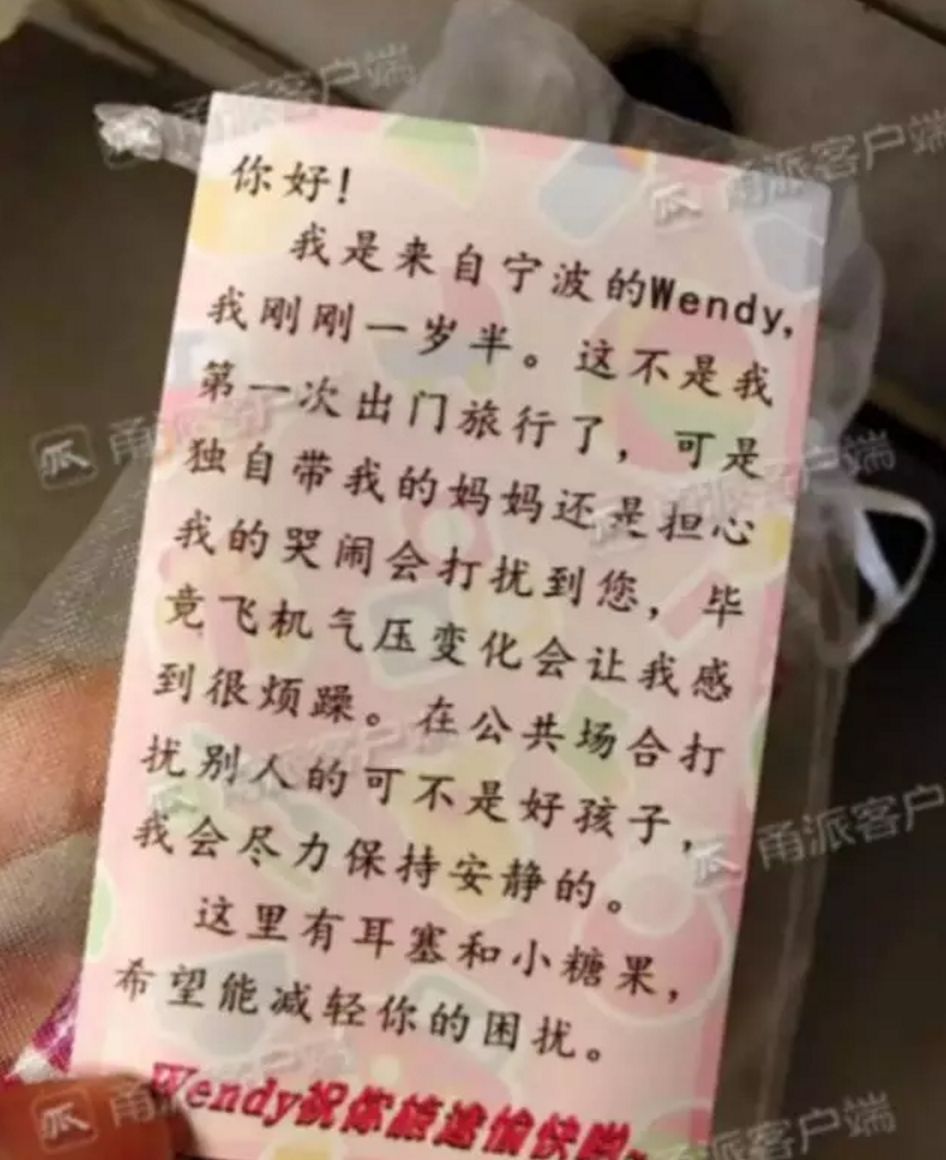 你好!
我是来自宁波的Wendy,
我刚刚一岁半。这不是我
第一次出门旅行了，可是
独自带我的妈妈还是担心
我的哭闹会打扰到您，毕
竟飞机气压变化会让我感
到很烦躁。在公共场合打
扰别人的可不是好孩子，
我会尽力保持安静的。
这里有耳塞和小糖果，
希望能减轻你的困扰。
Wendy祝你旅途愉快哟~
甬派客户端
甬派客户端
甬派客户端
甬派客户端
甬派客户端